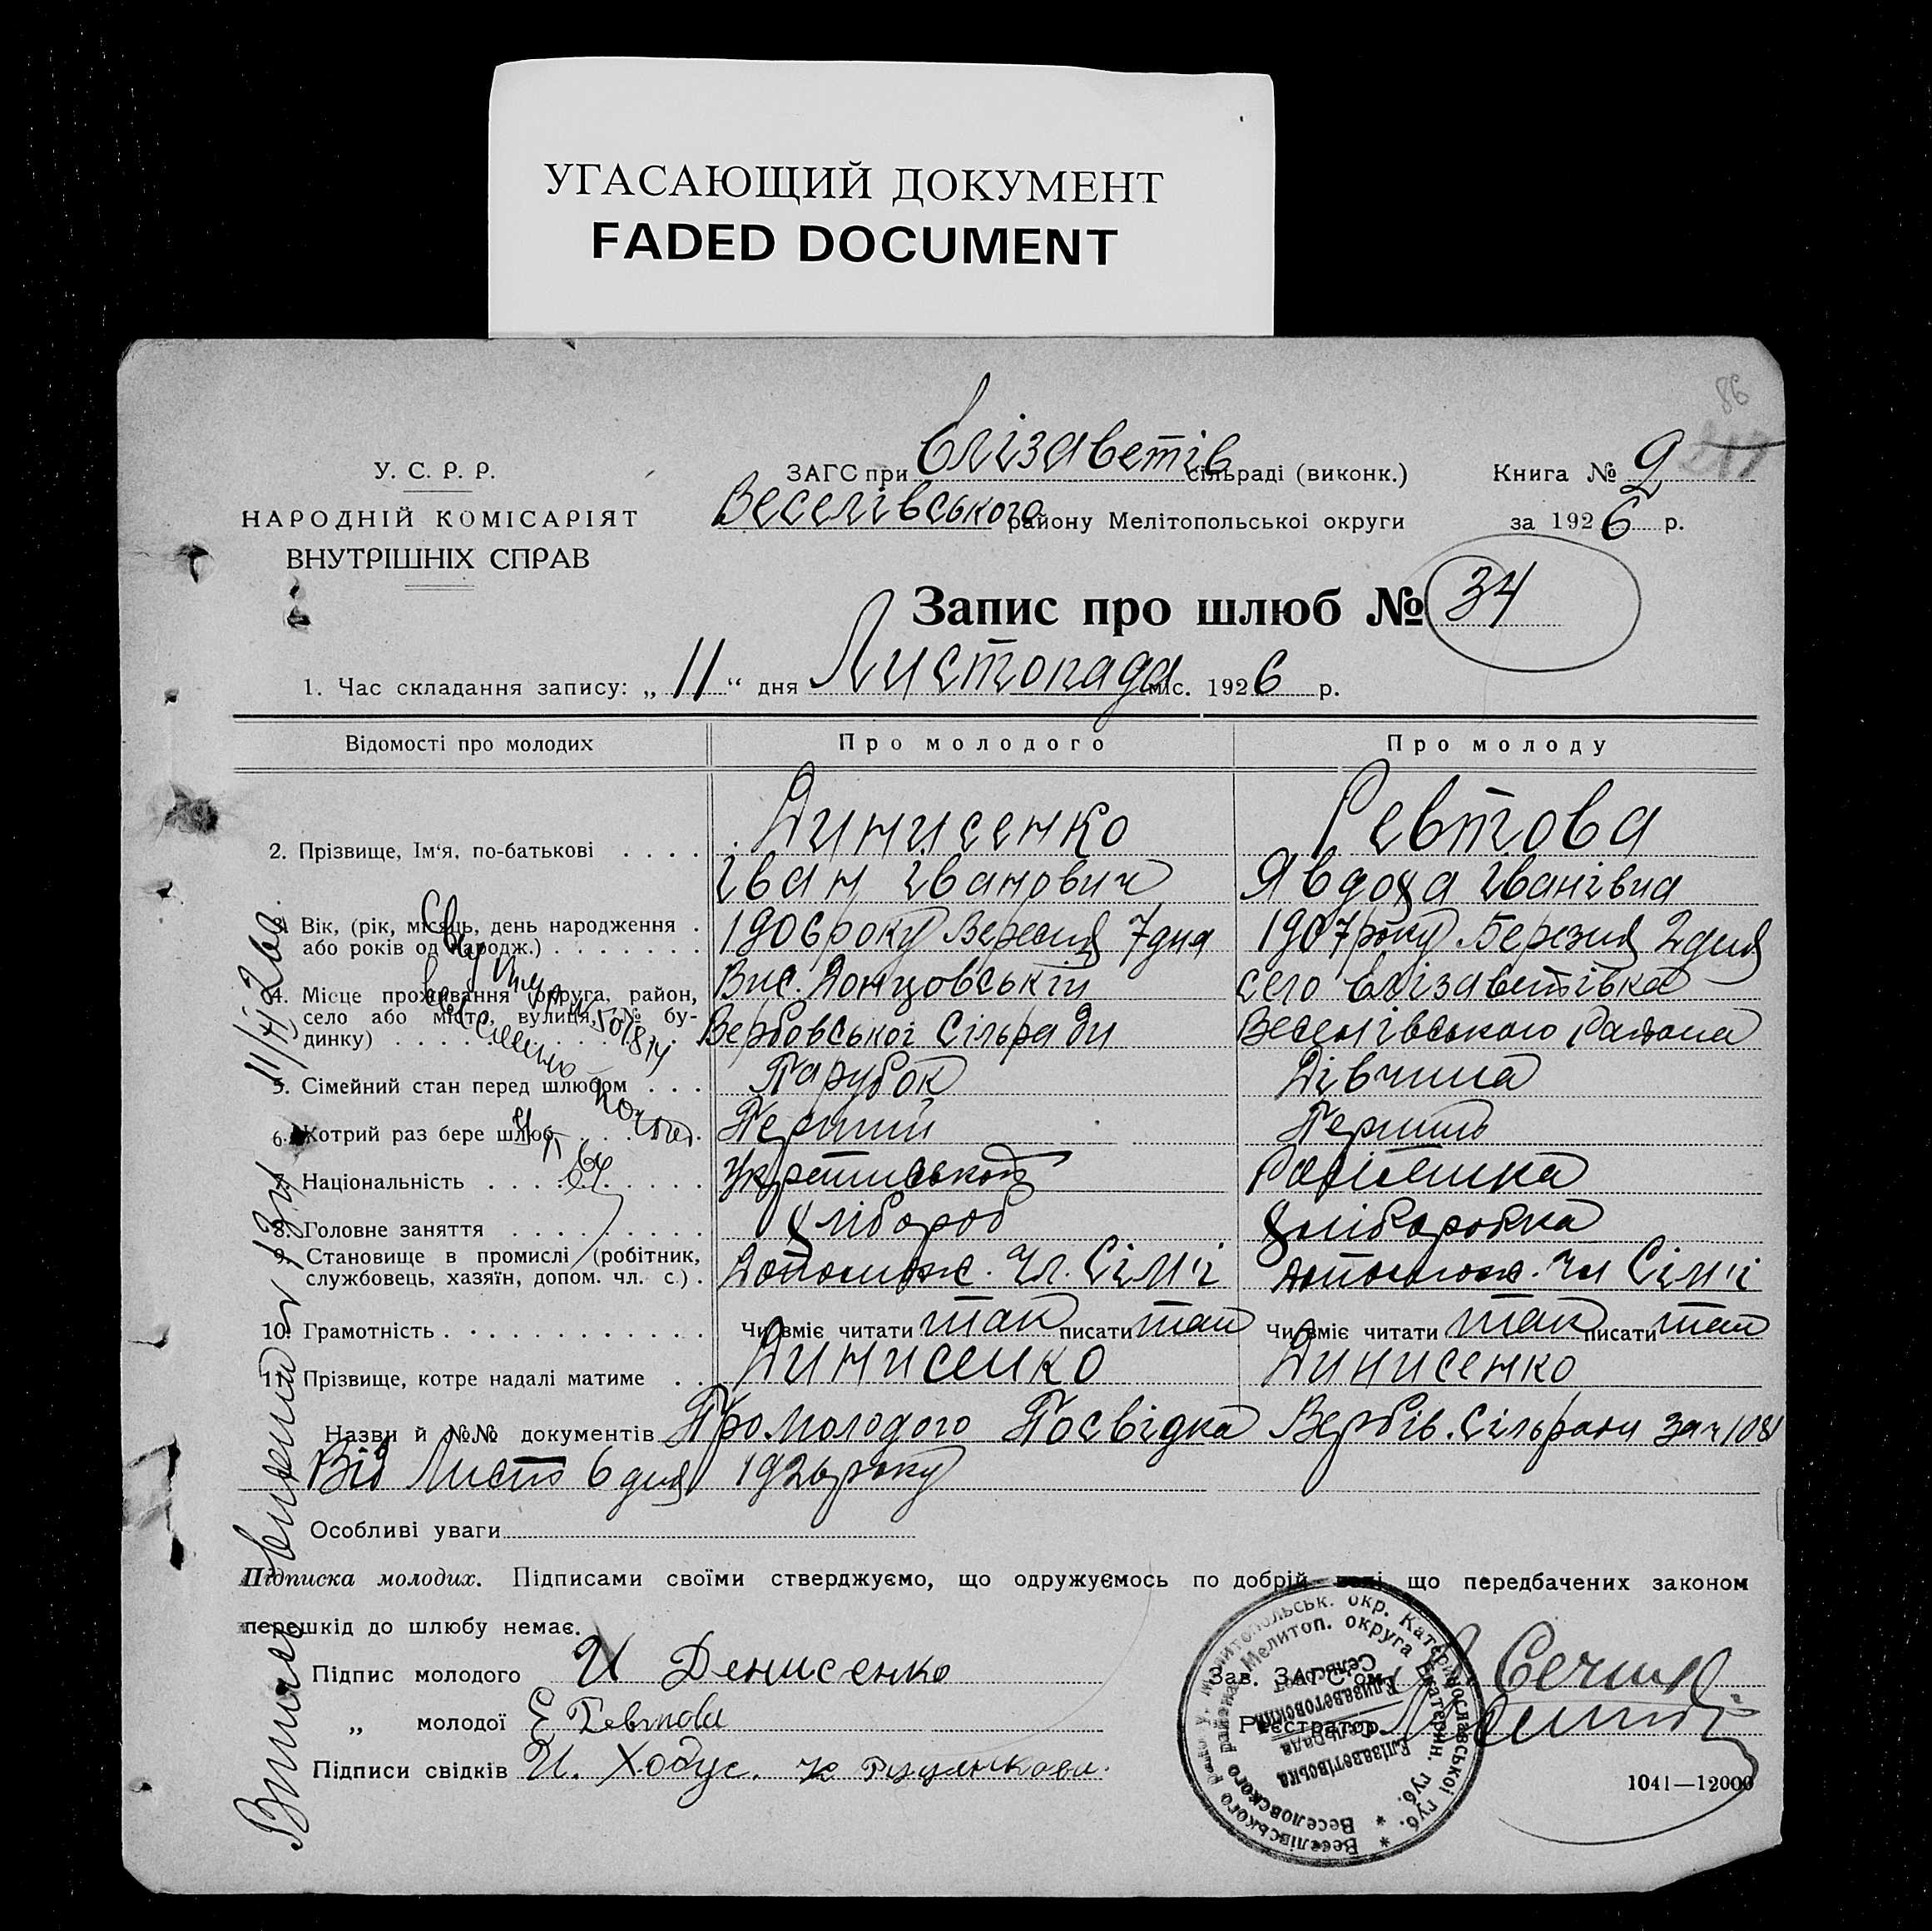 УГАСАЮЩИЙ ДОКУМЕНТ
FADED DOCUMENT
86
У. С. Р. Р.
НАРОДНІЙ КОМІСАРІЯТ
ВНУТРІШНІХ СПРАВ
ЗАГС при Єлізаветів сільраді (виконк.)
Веселівського району Мелітопольської округи
Книга № 2
за 1926 р.
Запис про шлюб № 34
1. Час складання запису: „ 11 " дня Листопада міс. 1926 р.
Відомості про молодих Про молодого Про молоду
2. Прізвище, Ім'я, по-батькові . . . . Динисенко Ревтова
Іван Іванович Явдоха Іванівна
Вік, (рік, місяць, день народження . або років од народж.) . . . . . . . 1906 року Вересня 7 дня 1907 року Березня 2 дня
4. Місце проживання (округа, район, Вис. Донцовський село Єлізаветівка
село або місто, вулиця, № будинку) . . . Вербовської Сільради Веселівського Района
5. Сімейний стан перед шлюбом . . . Парубок Дівчина
6. Котрий раз бере шлюб . . . Перший Перший
Національність . . . . . . . . .
8. Головне заняття . . . . . . . . . Хлібороб Хліборобка
9. Становище в промислі (робітник, службовець, хазяїн, допом. чл. с.) . Допомож. Чл. Сім'ї Допомож. Чл Сім'ї
10. Грамотність . . . . . . . . . . . . Чи вміє читати так писати так Чи вміє читати так писати так
11. Прізвище, котре надалі матиме . . Динисенко Динисенко
Назви й №№ документів Про молодого Посвідка Вербів. Сільради за ч 1081
Від Листо 6 дня 1926 року
Особливі уваги
Підписка молодих. Підписами своїми стверджуємо, що одружуємось по добрій волі що передбачених законом
перешкід до шлюбу немає.
Підпис молодого И Денисенко
„ молодої Е Ревтова
Підписи свідків И. Ходус.
Зав. ЗАГС'ом
Реєстратор
1041—12000
Веселівського Мелітопольськ. окр. Катеринославської губ.
Веселовского района Мелитоп. округа Екатерин. губ.
Єлізаветівська сельрада
Елизаветовский Сельсовет